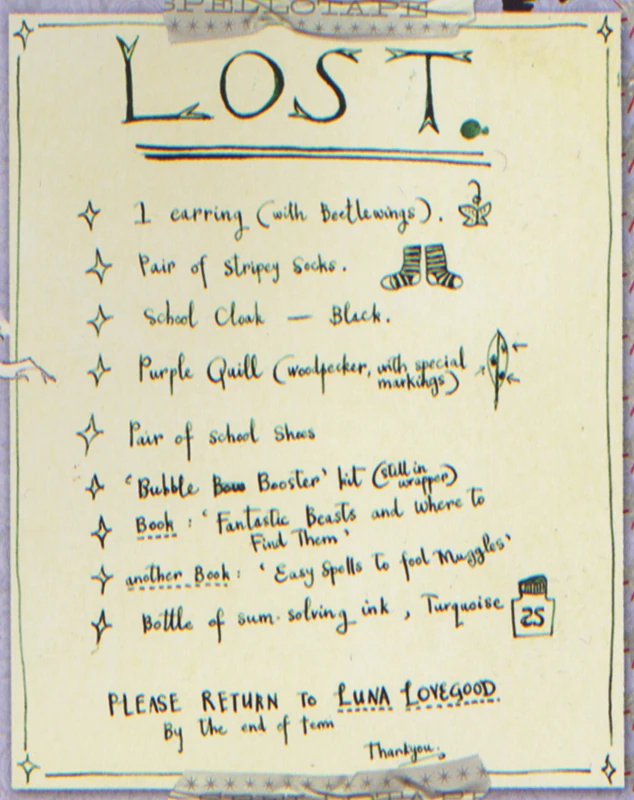 SPELLOTAPE
LOST.
1 earring (with Beetlewings).
Pair of Stripey Socks.
School Cloak — Black.
Purple Quill (woodpecker, with special
markings)
Pair of School Shoes
'Bubble Booster' kit (still in
wrapper)
Book: 'Fantastic Beasts and where to
Find Them'
another Book: 'Easy Spells to fool Muggles'
Bottle of sum-solving ink, Turquoise
25
PLEASE RETURN TO LUNA LOVEGOOD
By the end of term
Thankyou.